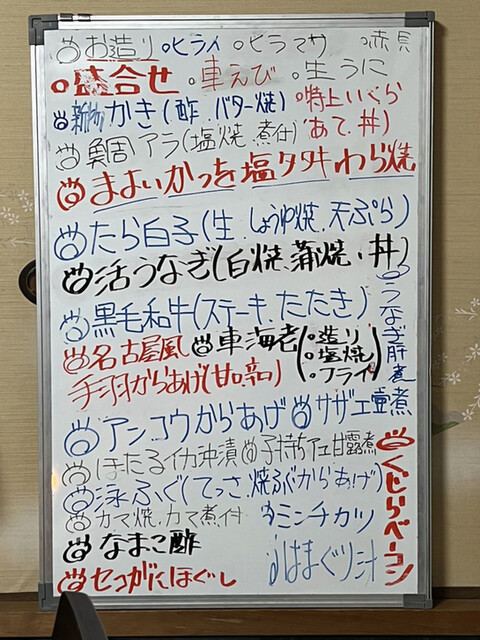 お造り ヒライ ヒラマサ 赤貝
盛合せ 車えび 生うに
新物 かき(酢、バター焼) 特上いくら
鯛アラ(塩焼、煮付) (あて、丼)
まよいかつを塩タタキわら焼
たら白子(生、しょうゆ焼、天ぷら)
活うなぎ(白焼、蒲焼、丼)
うなぎ肝煮
黒毛和牛(ステーキ、たたき)
名古屋風手羽からあげ(甘辛)
車海老(造り 塩焼 フライ)
アンコウからあげ サザエ壷煮
ほたるイカ沖漬 子持ちアユ甘露煮
泳ふぐ(てっさ、焼ふぐ、からあげ)
カマ焼、カマ煮付 ミンチカツ
なまこ酢
はまぐり汁
セコがにほぐし
くじらベーコン